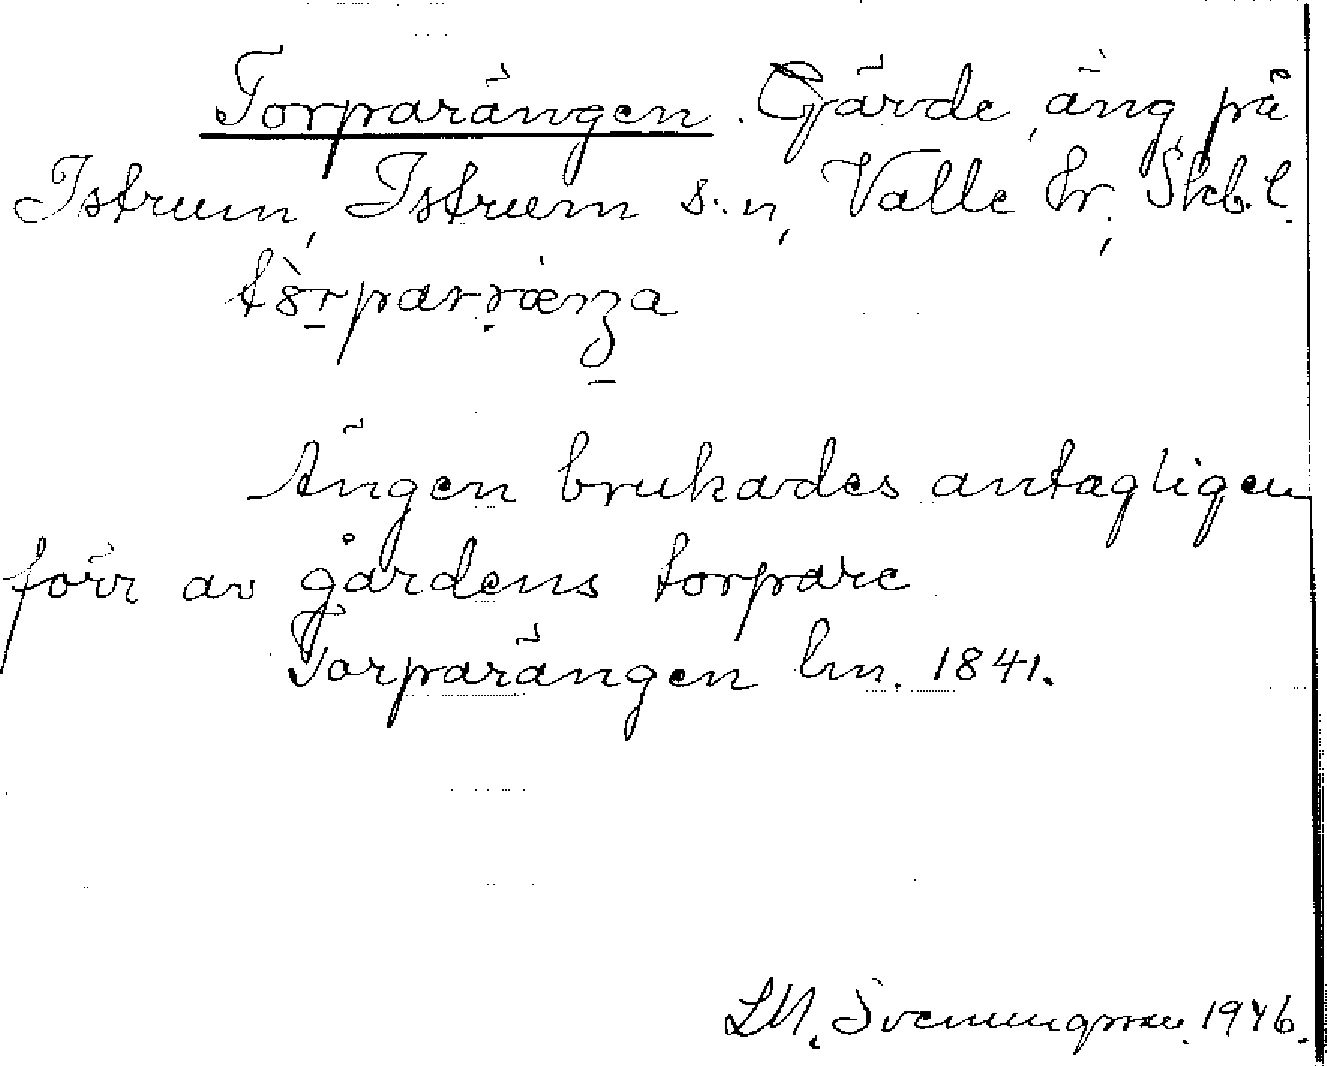 Torparängen. Gärde, äng på
Istrum, Istrum s:n, Valle hr, Skb.l.
Ängen brukades antagligen
förr av gårdens torpare
Torparängen lm. 1841.
L.M. Svenungsson. 1946.